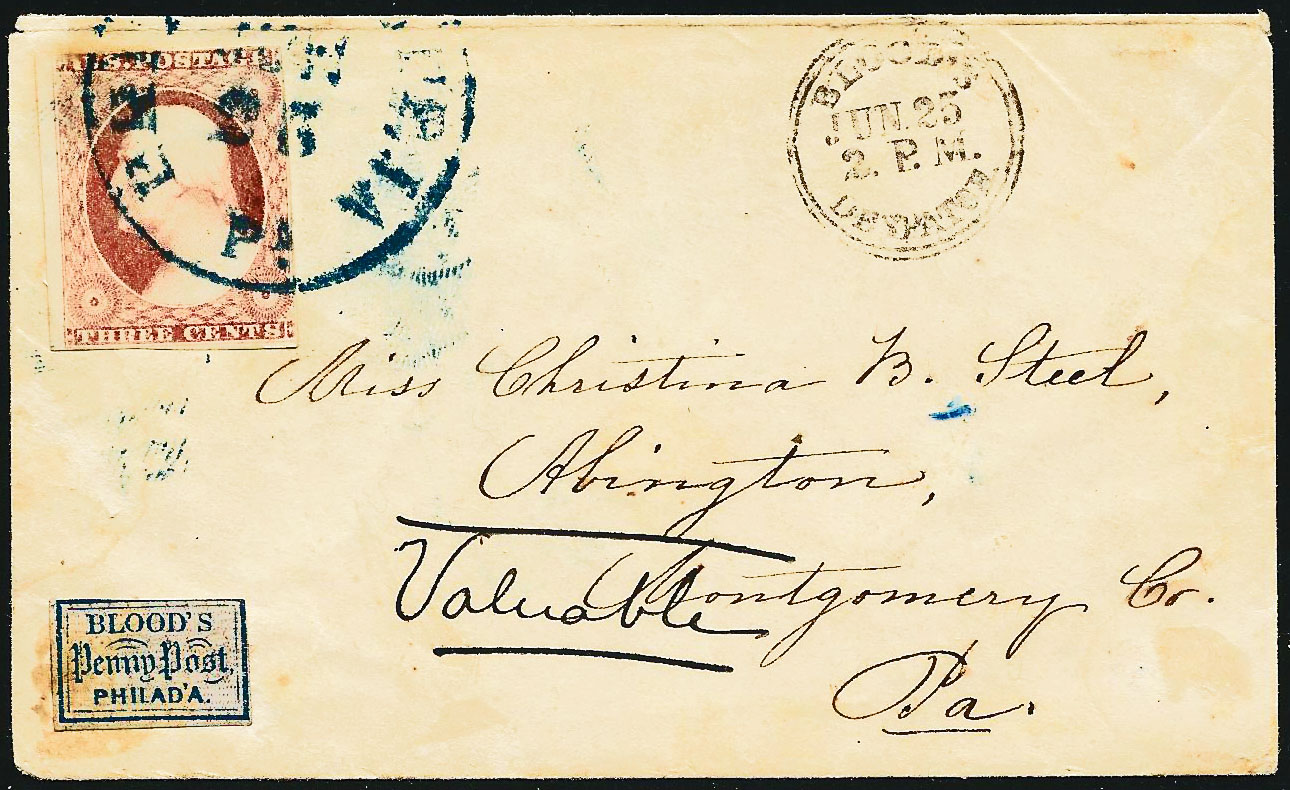 U.S. POSTAGE
THREE CENTS
PA.
BLOOD'S
JUN. 25
2. P. M.
DESPATCH
Miss Christina B. Steel,
Abington,
Valuable
Montgomery Co.
Pa.
BLOOD'S
Penny Post,
PHILAD'A.